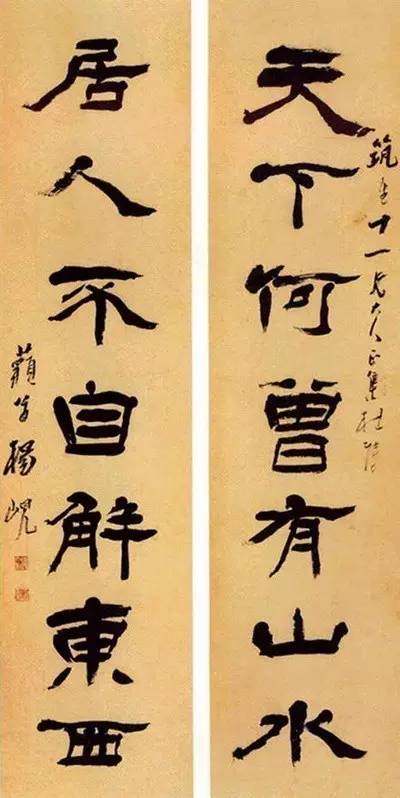 筑 十一兄大人正集杜陵
天下何曾有山水
居人不自解東西
楊峴